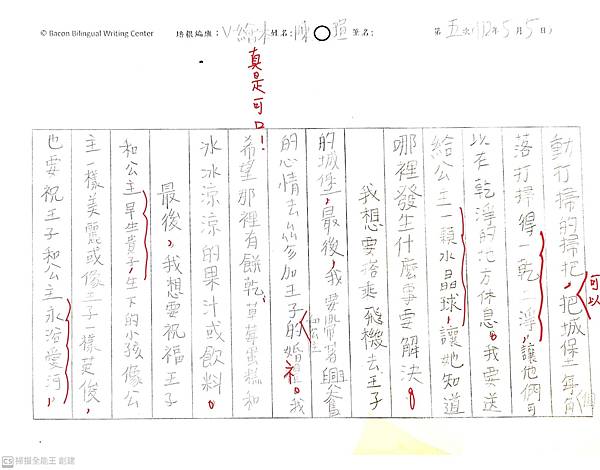 © Bacon Bilingual Writing Center 培根編號：V-繪本 姓名：陳○瑄 筆名： 第五次（112年5月5日）
真是可口！
可以
動打掃的掃把，把城保一年角
落打掃得一乾二淨，讓他倆可
以在乾淨的地方休息。我要送
給公主一顆水晶球，讓她知道
哪裡發生什麼事要解決。
我想要搭乘飛機去王子
的城堡，最後，我要帶著興奮
的心情去參加王子的婚禮。我
和公主
希望那裡有餅乾、草莓蛋糕和
冰冰涼涼的果汁或飲料。
最後，我想要祝福王子
和公主早生貴子，生下的小孩像公
主一樣美麗或像王子一樣英俊，
也要祝王子和公主永浴愛河，
CS 掃描全能王 創建